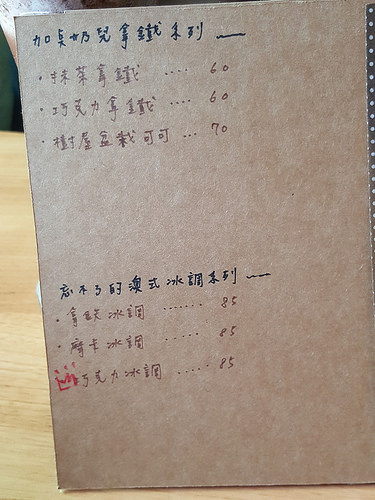 加桌奶兒拿鐵系列 ~
·抹茶拿鐵 .... 60
·巧克力拿鐵 .... 60
·樹屋盆栽可可 ... 70
忘不了的澳式冰調系列 ~
·拿鐵冰調 ...... 85
·摩卡冰調 ..... 85
巧克力冰調 ..... 85